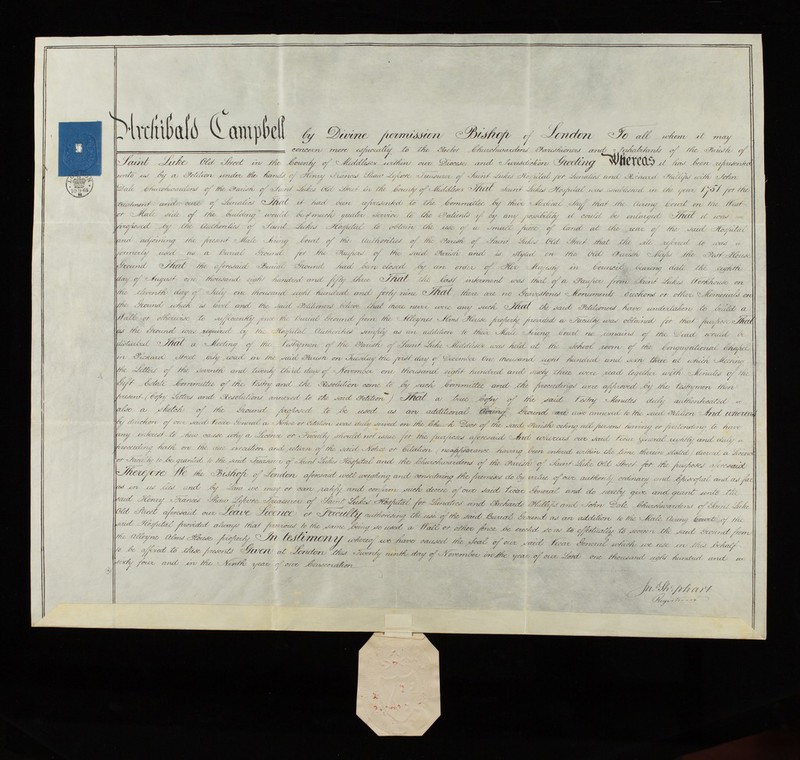 Archibald Campbell by Divine permission Bishop of London To all whom it may
concern more especially to the Rector Churchwardens Parishioners and Inhabitants of the Parish of
Saint Luke Old Street in the County of Middlesex within our Diocese and Jurisdiction Greeting Whereas it has been represented
unto us by a Petition under the hands of Henry Francis Shaw Lefevre Treasurer of Saint Lukes Hospital for Lunatics and Richard Phillips and John
Dale Churchwardens of the Parish of Saint Lukes Old Street in the County of Middlesex That Saint Lukes Hospital was established in the year 1751 for the
treatment and care of Lunatics That it had been represented to the Committee by their Medical Staff that the Airing Court on the West
or Male side of the building would be of much greater service to the Patients if by any possibility it could be enlarged That it was
proposed by the Authorities of Saint Lukes Hospital to obtain the use of a small piece of Land at the rear of the said Hospital
and adjoining the present Male Airing Court of the Authorities of the Parish of Saint Lukes Old Street that the site referred to was
formerly used as a Burial Ground for the Paupers of the said Parish and is styled on the Old Parish Maps the Pest House
Ground That the aforesaid Burial Ground had been closed by an order of Her Majesty in Council bearing date the eighth
day of August one thousand eight hundred and fifty three That the last interment was that of a Pauper from Saint Lukes Workhouse on
the eleventh day of one thousand eight hundred and forty nine That there are no Gravestones Monuments Escutcheons or other Memorials on
the Ground which is level and the said Petitioners believe that there never were any such That the said Petitioners have undertaken to build a
Wall or otherwise to sufficiently part the Burial Ground from the Alleyns Alms House property provided a Faculty was obtained for that purpose That
as the Ground was required by the Hospital Authorities simply as an addition to their Male Airing Court no remains of the Dead would be
disturbed That a Meeting of the Vestrymen of the Parish of Saint Luke Middlesex was held at the School room of the Congregational Chapel
in Richard Street City road in the said Parish on Tuesday the first day of December one thousand eight hundred and sixty three at which Meeting
the Letters of the seventh and twenty third days of November one thousand eight hundred and sixty three were read together with Minutes of the
Gift Estate Committee of the Vestry and the Resolution come to by such Committee and the proceedings were approved by the Vestrymen then
present (Copy Letters and Resolutions annexed to the said Petition) That a true Copy of the said Vestry Minutes duly authenticated
also a sketch of the Ground proposed to be used as an additional Airing Ground were annexed to the said Petition And whereas
by direction of our said Vicar General a Notice or Citation was duly served on the Church Door of the said Parish citing all persons having or pretending to have
any interest to shew cause why a Licence or Faculty should not issue for the purposes aforesaid And whereas our said Vicar General rightly and duly
proceeding hath on the due execution and return of the said Notice or Citation nonappearance having been entered within the time therein stated decreed a Licence
or Faculty to be granted to the said Treasurer of Saint Lukes Hospital and the Churchwardens of the Parish of Saint Luke Old Street for the purposes aforesaid
Therefore We the Bishop of London aforesaid well weighing and considering the premises do by virtue of our authority ordinary and Episcopal and as far
as in us lies and by Law we may or can ratify and confirm such decree of our said Vicar General and do hereby give and grant unto the
said Henry Francis Shaw Lefevre Treasurer of Saint Lukes Hospital for Lunatics and Richard Phillips and John Dale Churchwardens of Saint Luke
Old Street aforesaid our Leave Licence or Faculty authorizing the use of the said Burial Ground as an addition to the Male Airing Court of the
said Hospital provided always that previous to the same being so used a Wall or other fence be erected so as to effectually to screen the said Ground from
the Alleyne Alms House property In testimony whereof we have caused the Seal of our said Vicar General which we use in this behalf
to be affixed to these presents Given at London this Twenty ninth day of November in the year of our Lord one thousand eight hundred and
sixty four and in the Ninth year of our Consecration
Jno. Shephard
Registrar